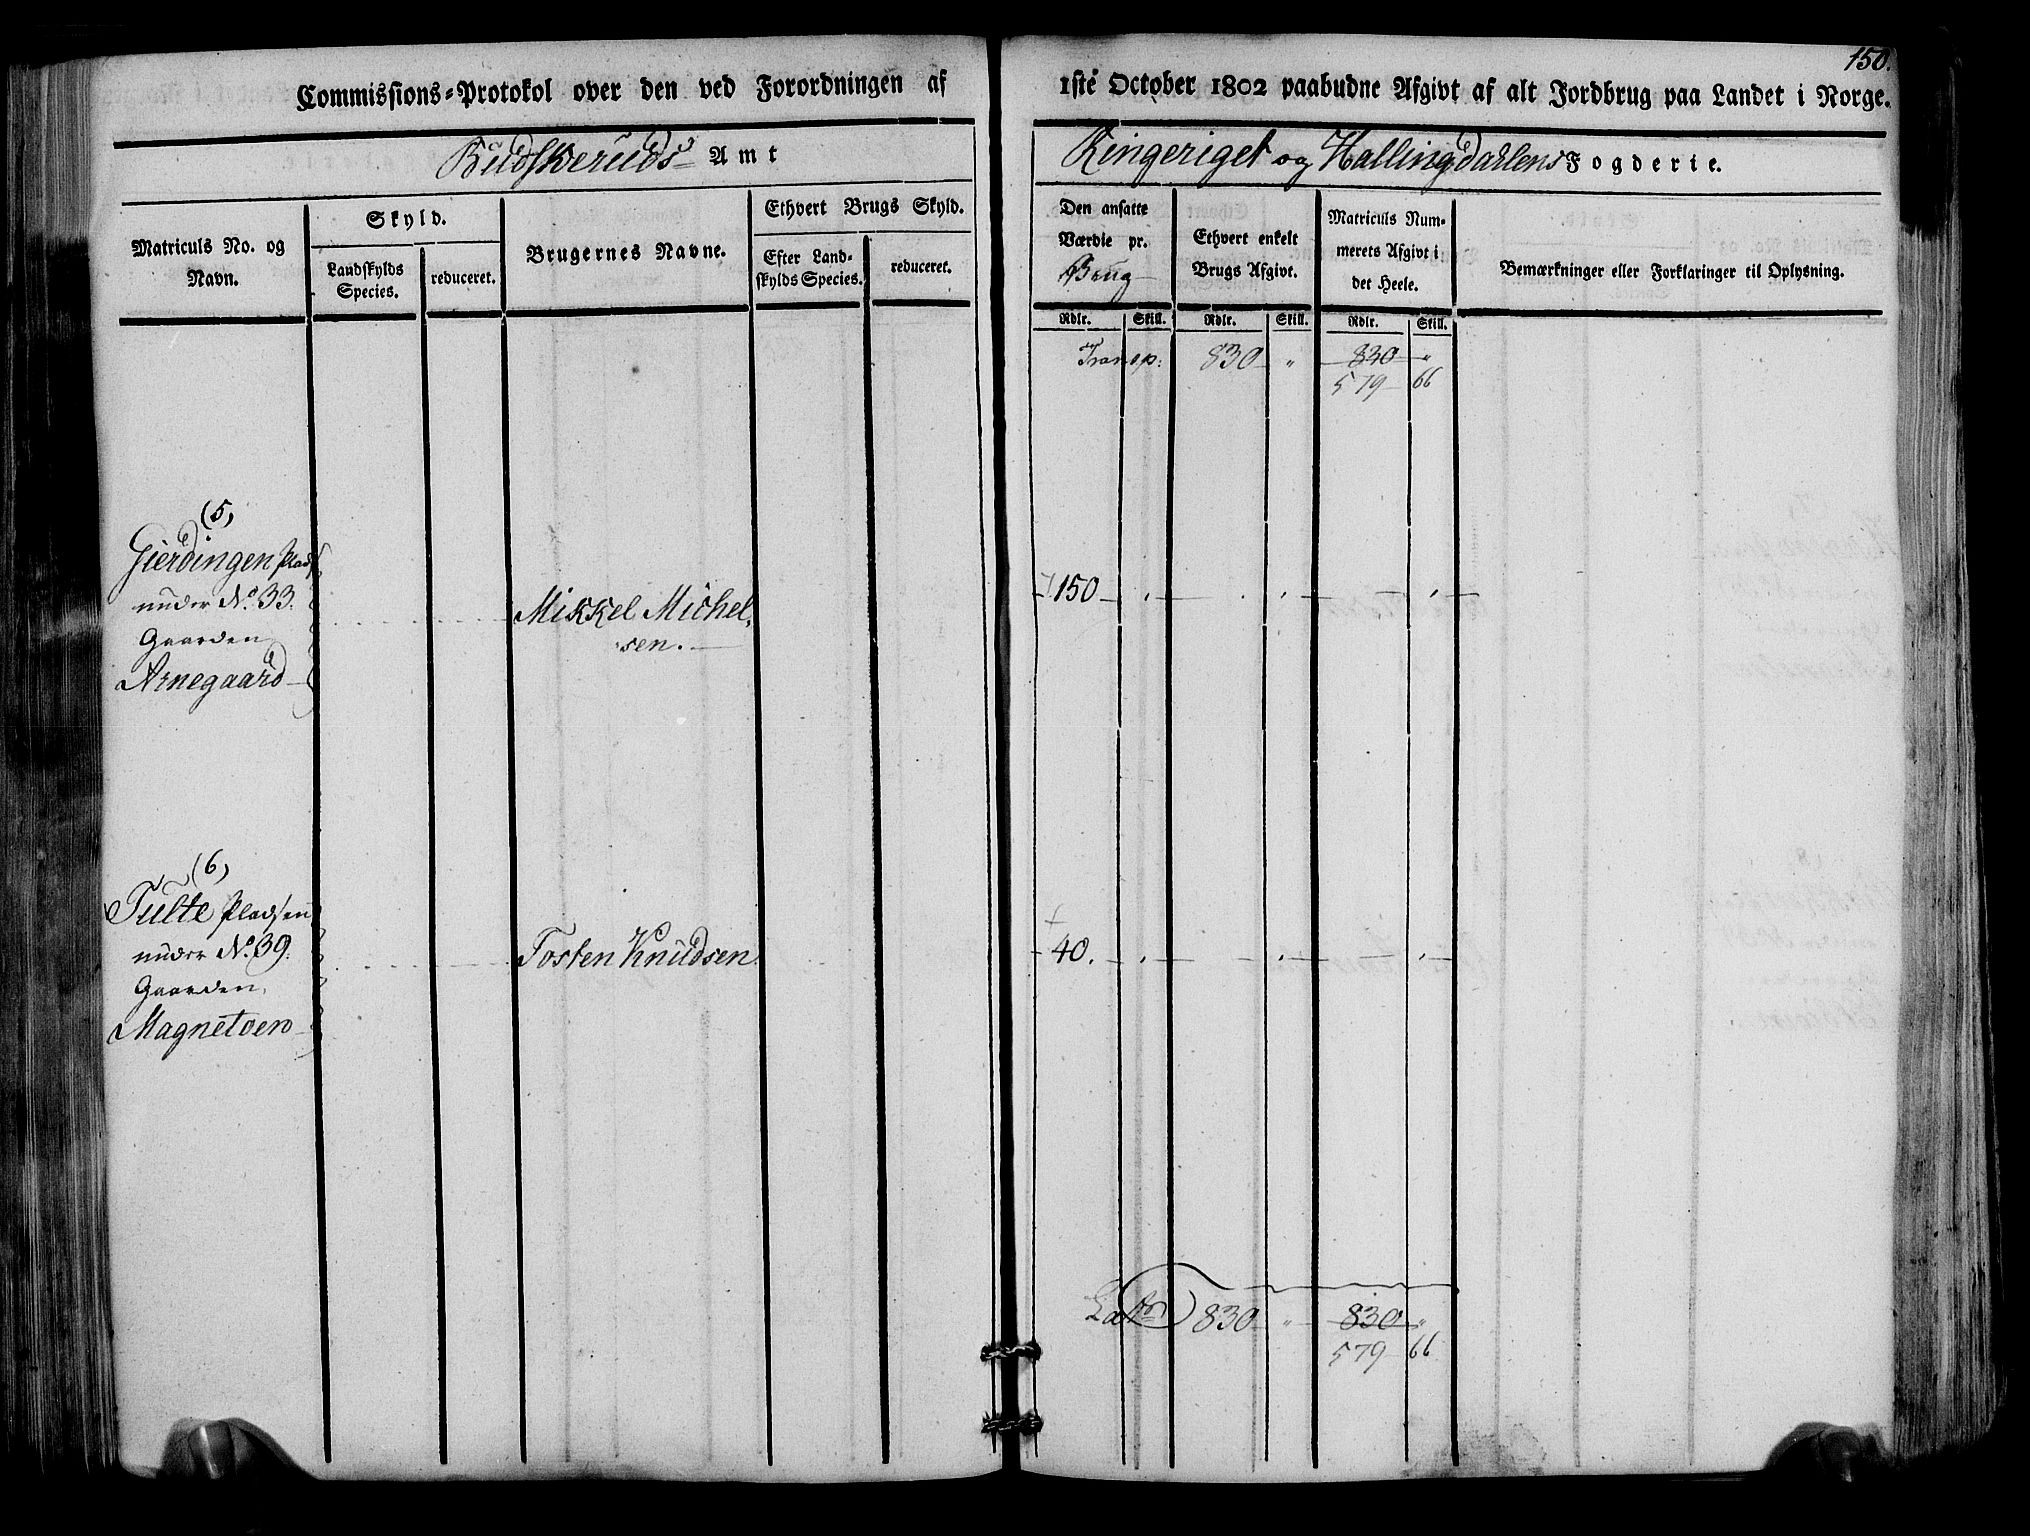 150.
Commissions-Protokol over den ved Forordningen af 1ste October 1802 paabudne Afgivt af alt Jordbrug paa Landet i Norge.
Budskeruds Amt Ringeriget og Hallingdahlens Fogderie.
Matriculs No. og Navn.
Skyld.
Landskylds Species.
reduceret.
Brugernes Navne.
Ethvert Brugs Skyld.
Efter Landskylds Species.
reduceret.
Den ansatte Værdie pr. Brug
Ethvert enkelt Brugs Afgivt.
Matriculs Nummerets Afgivt i det Heele.
Bemærkninger eller Forklaringer til Oplysning.
Rdlr. Skill. Rdlr. Skill. Rdlr. Skill.
Transp: 830 " 830 "
579 66
(5)
Gierdingen Plads
under No. 33.
Gaarden
Arnegaard
Mikkel Michel-
sen.
150
(6)
Tulte Pladsen
under No. 39.
Gaarden
Magnetoen
Tosten Knudsen
40.
Latr 830 " 830 "
579 66